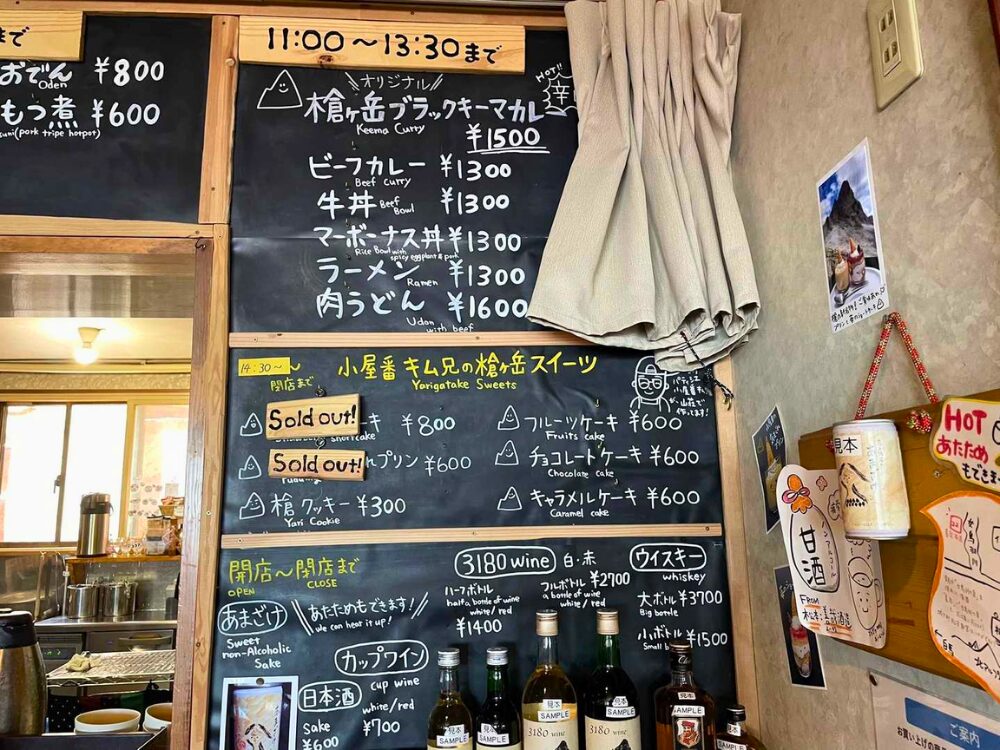 まで
おでん ¥800
Oden
もつ煮 ¥600
(pork tripe hotpot)
11:00〜13:30まで
オリジナル
HOT!
辛
槍ヶ岳ブラックキーマカレ
Keema Curry
¥1500
ビーフカレー ¥1300
Beef curry
牛丼 Beef Bowl ¥1300
マーボーナス丼 ¥1300
Rice Bowl with spicy eggplant & pork
ラーメン ¥1300
Ramen
肉うどん ¥1600
Udon with beef
14:30〜
閉店まで
小屋番 キム兄の槍ヶ岳スイーツ
Yarigatake Sweets
Sold out!
キ ¥800
Shortcake
Sold out!
プリン ¥600
Pudding
槍クッキー ¥300
Yari Cookie
フルーツケーキ ¥600
Fruits cake
チョコレートケーキ ¥600
Chocolate cake
キャラメルケーキ ¥600
Caramel cake
開店〜閉店まで
OPEN CLOSE
あまざけ
Sweet
non-Alcoholic
Sake
あたためもできます!
we can heat it up!
カップワイン
cup wine
white/red
¥700
日本酒
sake
¥600
3180 wine 白・赤
ハーフボトル
half a bottle of wine
white/red
¥1400
フルボトル ¥2700
a bottle of wine
white/red
ウイスキー
whiskey
大ボトル ¥3700
Big bottle
小ボトル ¥1500
Small
見本
SAMPLE
見本
SAMPLE
見本
SAMPLE
3180 wine
見本
SAMPLE
3180 wine
見本
SAMPLE
見本
SAMPLE
見本
HOT
あたため
もできま
甘酒
FROM
ご案内